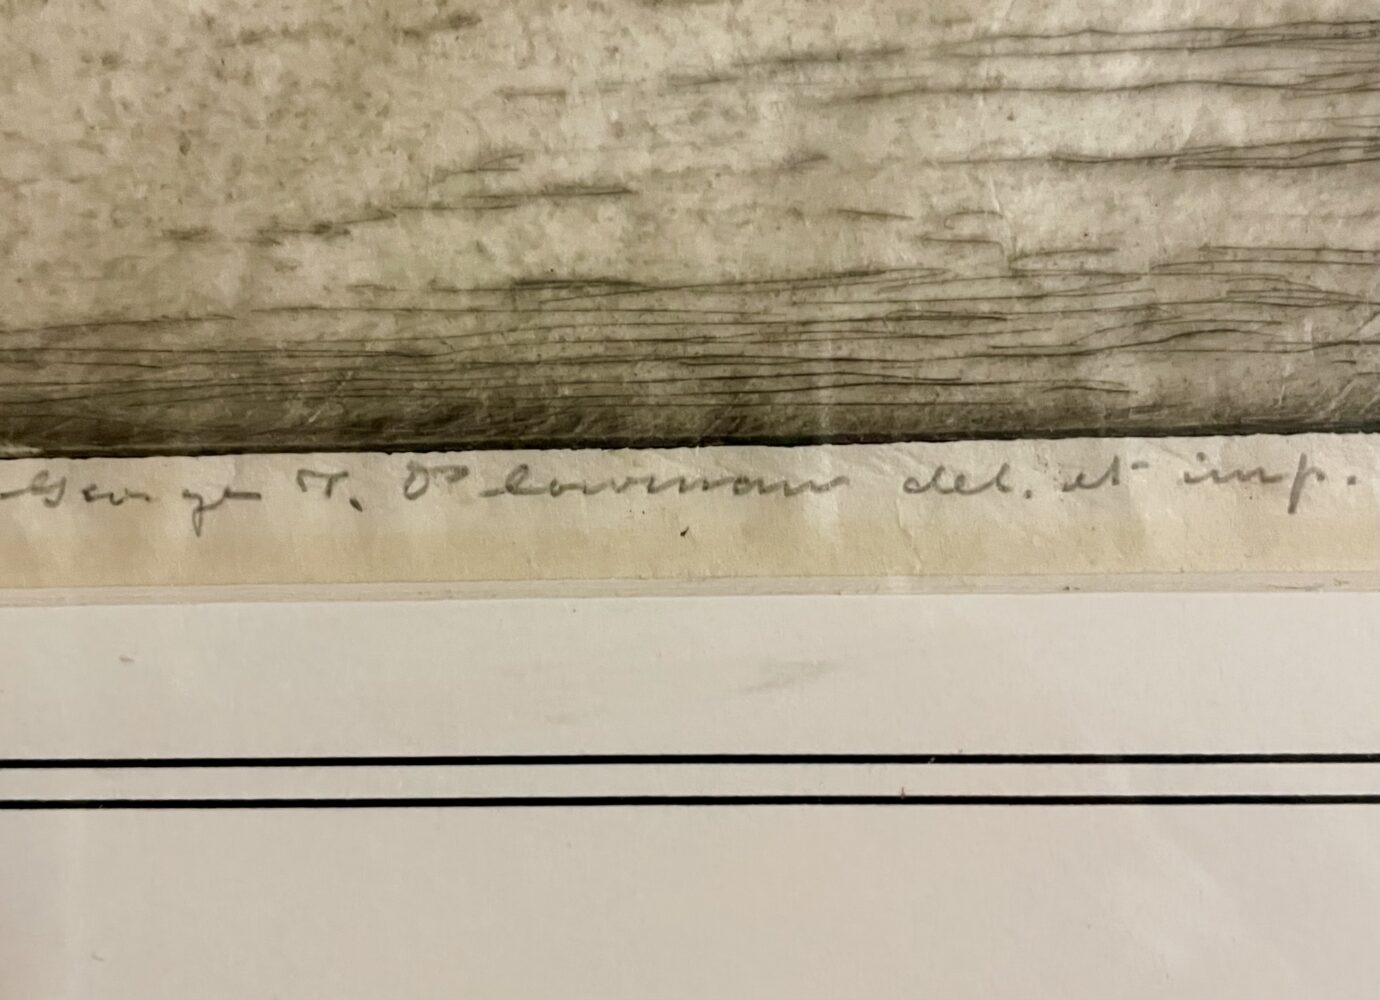 George T. Plowman del. et imp.